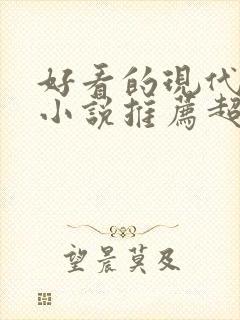 好看的現代
小說推薦超
望晨莫及